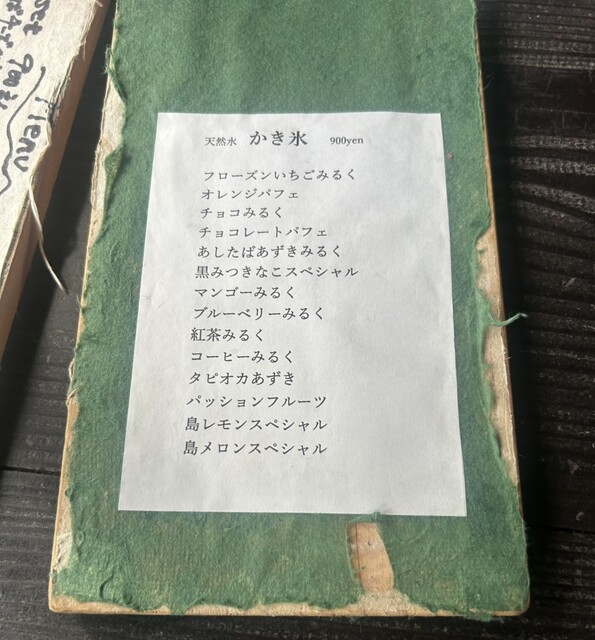 天然氷 かき氷 900yen
フローズンいちごみるく
オレンジパフェ
チョコみるく
チョコレートパフェ
あしたばあずきみるく
黒みつきなこスペシャル
マンゴーみるく
ブルーベリーみるく
紅茶みるく
コーヒーみるく
タピオカあずき
パッションフルーツ
島レモンスペシャル
島メロンスペシャル
Menu